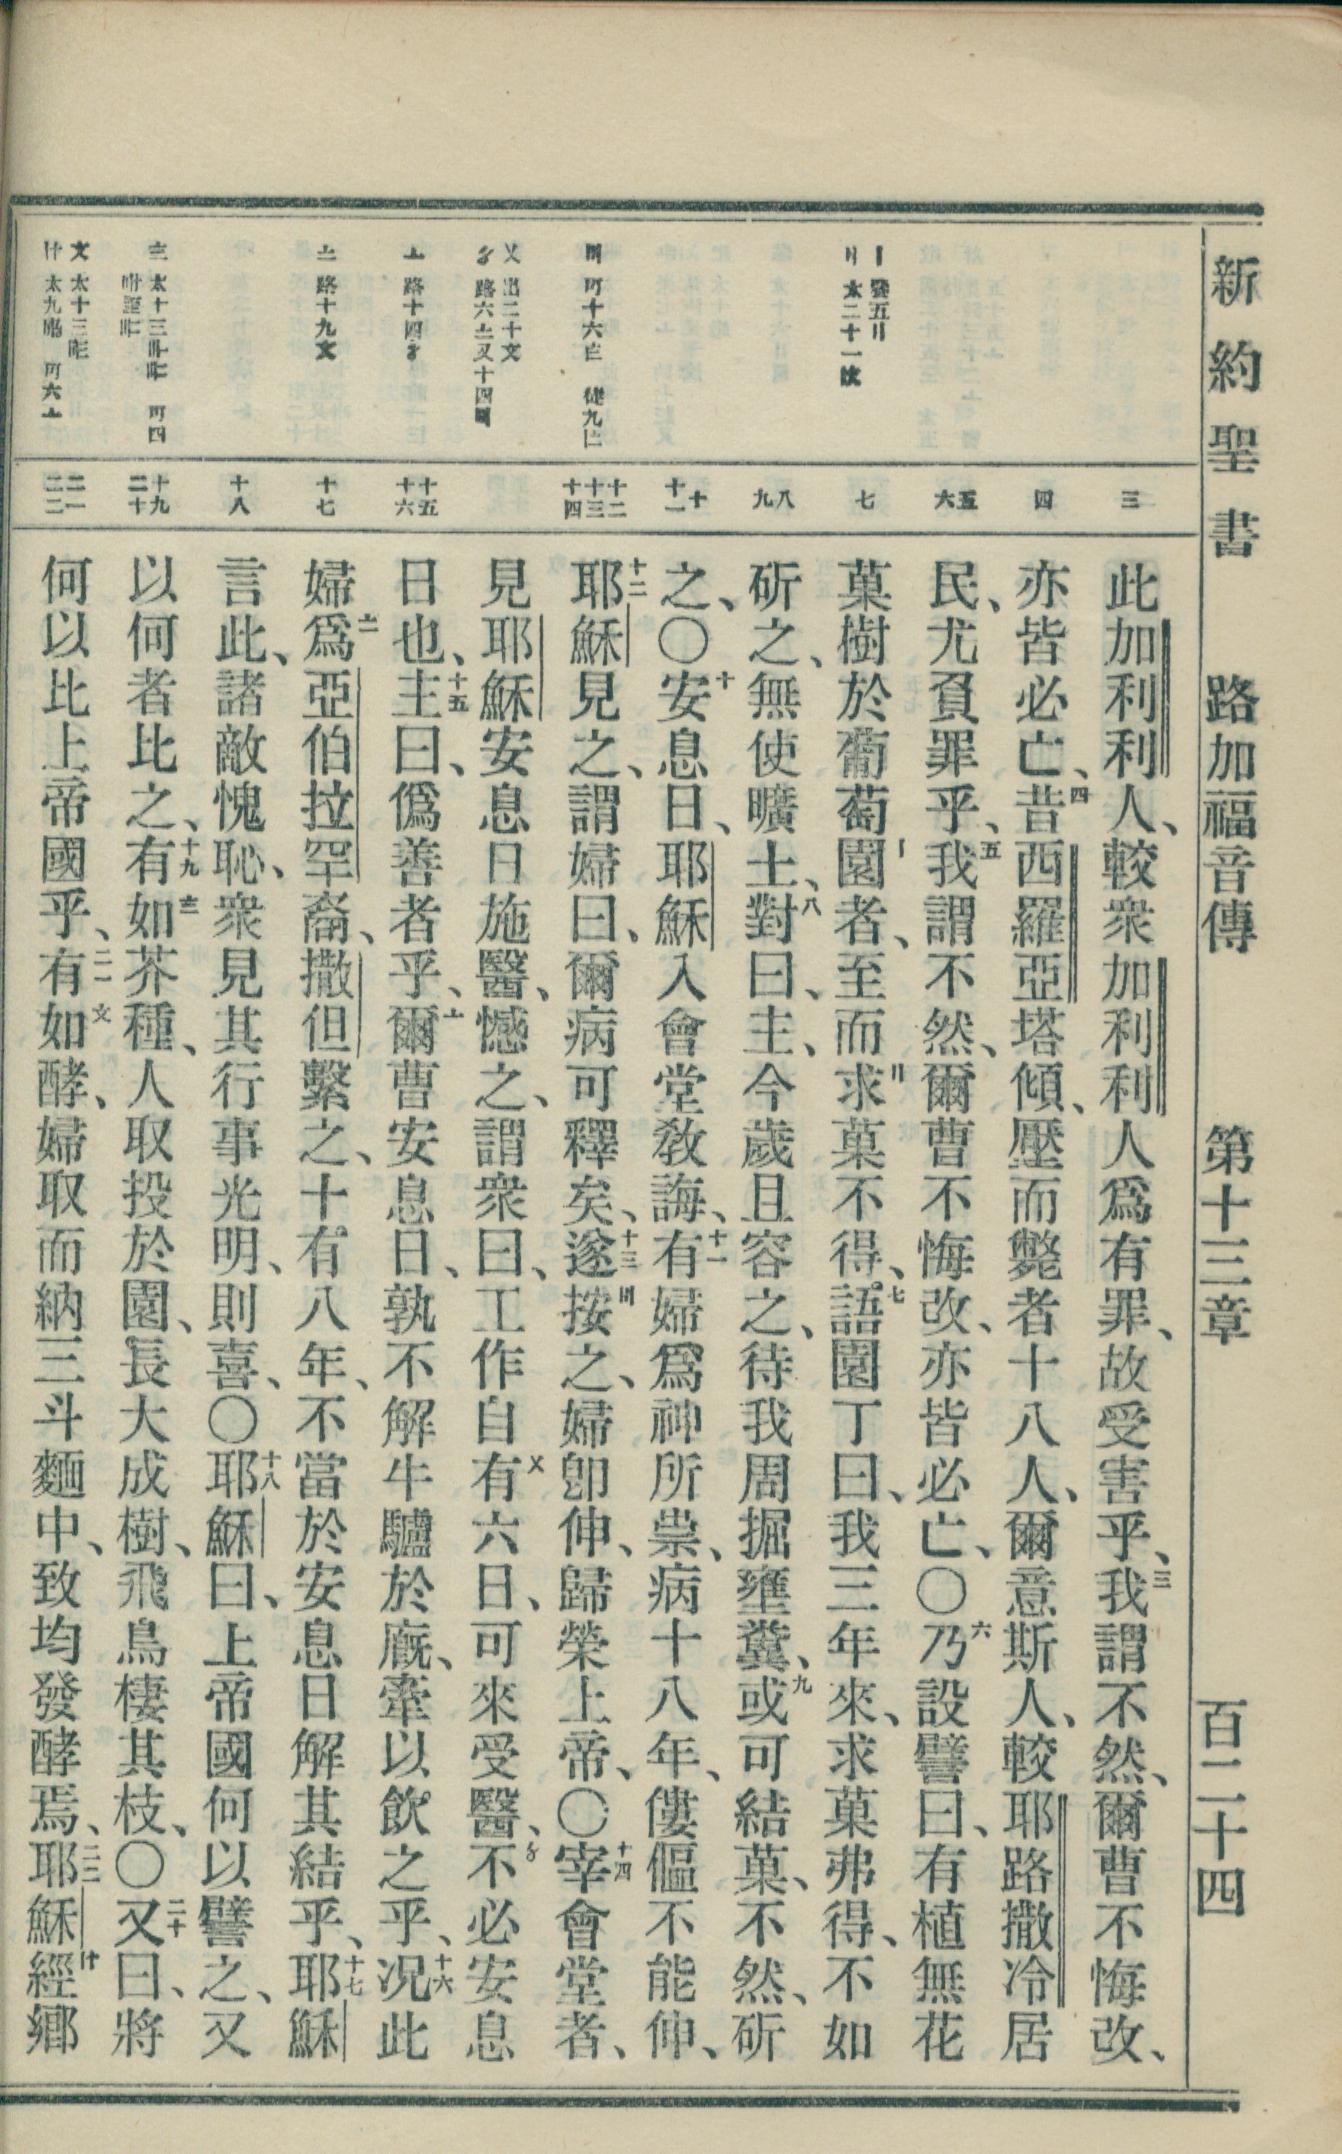 新約聖書 路加福音傳 第十三章 百二十四
三
四
五
六
七
八
九
十
十一
十二
十三
十四
十五
十六
十七
十八
十九
二十
二一
二二
此加利利人、較衆加利利人爲有罪、故受害乎、三我謂不然、爾曹不悔改、
亦皆必亡、四昔西羅亞塔傾、壓而斃者十八人、爾意斯人、較耶路撒冷居
民、尤負罪乎、五我謂不然、爾曹不悔改、亦皆必亡、〇六乃設譬曰、有植無花
菓樹於葡萄園者、至而求菓不得、七語園丁曰、我三年來、求菓弗得、不如
斫之、無使曠土、八對曰、主、今歲且容之、待我周掘壅糞、九或可結菓、不然、斫
之、〇十安息日、耶穌入會堂敎誨、十一有婦爲神所祟、病十八年、僂傴不能伸、
十二耶穌見之、謂婦曰、爾病可釋矣、十三遂按之、婦卽伸、歸榮上帝、〇十四宰會堂者、
見耶穌安息日施醫、憾之、謂衆曰、工作自有六日、可來受醫、不必安息
日也、十五主曰、僞善者乎、爾曹安息日、孰不解牛驢於廐、牽以飮之乎、十六況此
婦爲亞伯拉罕裔、撒但繫之、十有八年、不當於安息日解其結乎、十七耶穌
言此、諸敵愧恥、衆見其行事光明、則喜、〇十八耶穌曰、上帝國何以譬之、又
以何者比之、十九有如芥種、人取投於園、長大成樹、飛鳥棲其枝、〇二十又曰、將
何以比上帝國乎、二一有如酵、婦取而納三斗麵中、致均發酵焉、二二耶穌經鄉